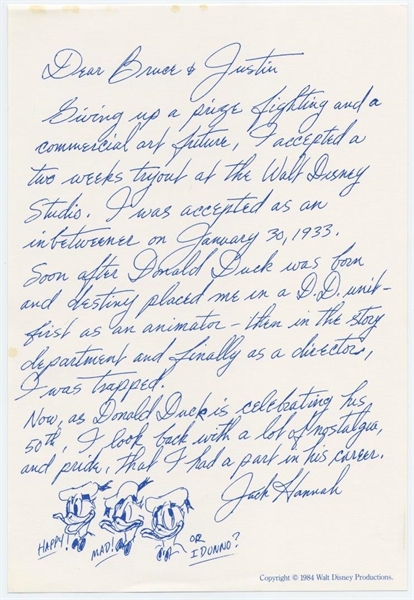 Dear Bruce & Justin
Giving up a prize fighting and a
commercial art future, I accepted a
two weeks tryout at the Walt Disney
Studio. I was accepted as an
inbetweener on January 30, 1933.
Soon after Donald Duck was born
and destiny placed me in a D.D. unit-
first as an animator - then in the story
department and finally as a director,
I was trapped.
Now, as Donald Duck is celebrating his
50th, I look back with a lot of nostalgia,
and pride, that I had a part in his career.
Jack Hannah
HAPPY! MAD! OR I DUNNO?
Copyright © 1984 Walt Disney Productions.